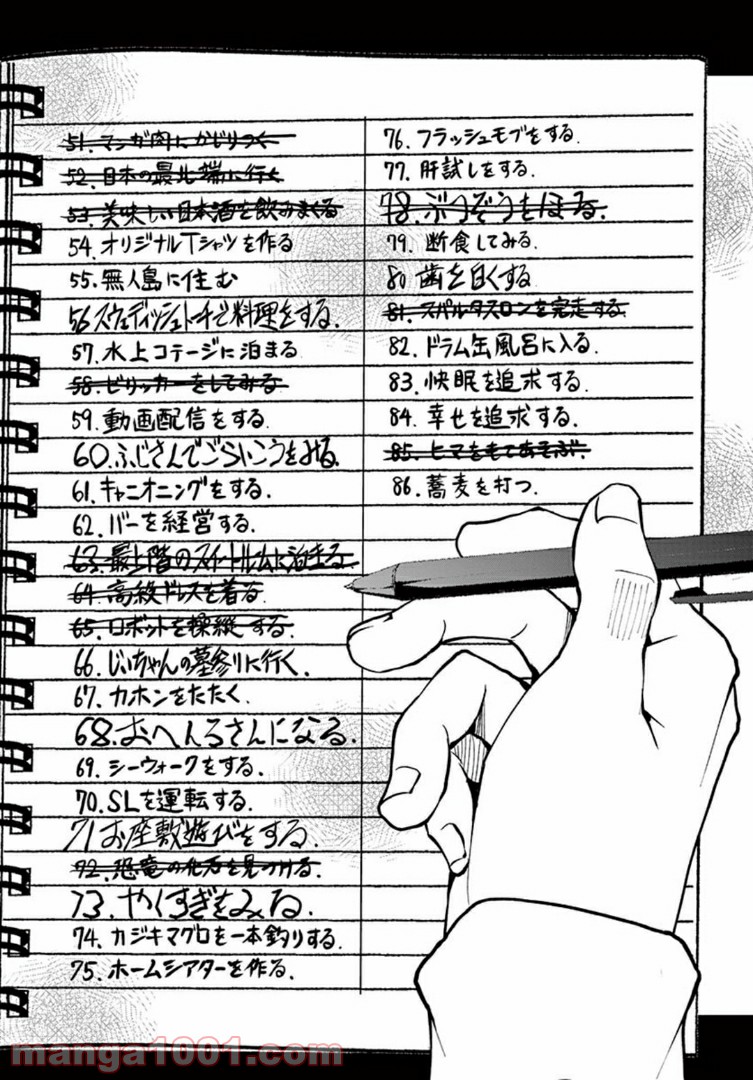 51.マンガ肉にかじりつく
52.日本の最北端に行く
53.美味しい日本酒を飲みまくる
54.オリジナルTシャツを作る
55.無人島に住む
56スウェディッシュトーチで料理をする.
57.水上コテージに泊まる
58.ビリッカーをしてみる
59.動画配信をする.
60.ふじさんでごらいこうをみる.
61.キャニオニングをする.
62.バーを経営する.
63.最上階のスイートルームに泊まる
64.高級ドレスを着る.
65.ロボットを操縦する.
66.じいちゃんの墓参りに行く.
67.カホンをたたく.
68.おへんろさんになる.
69.シーウォークをする.
70.SLを運転する.
71お座敷遊びをする.
72.恐竜の化石を見つける.
73.やくすぎをみる.
74.カジキマグロを一本釣りする.
75.ホームシアターを作る.
76.フラッシュモブをする.
77.肝試しをする.
78.ぶつぞうをほる.
79.断食してみる.
80歯を白くする
81.スパルタスロンを完走する.
82.ドラム缶風呂に入る.
83.快眠を追求する.
84.幸せを追求する.
85.ヒマをもてあそぶ.
86.蕎麦を打つ.
manga1001.com